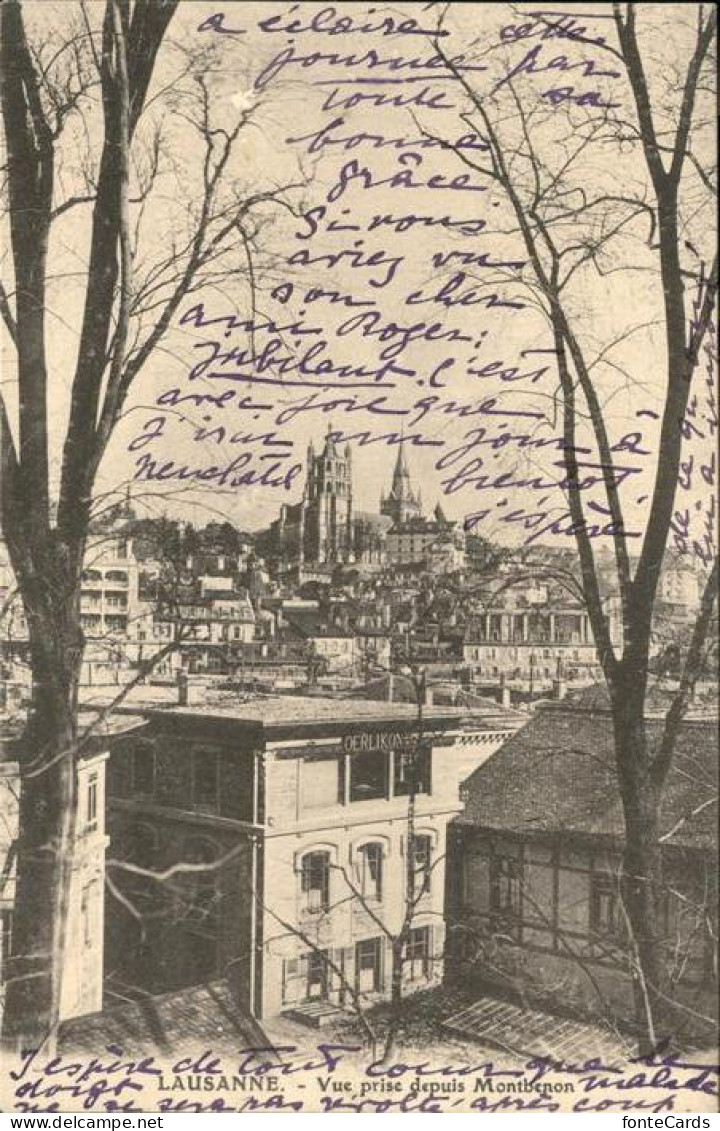 a éclairé cette
journée par
toute sa
bonne
grâce
Si vous
ariez vu
son cher
ami Roger:
jubilant. C'est
avec joie que
j'irai un jour à
Neuchâtel bientôt
j'espère
de ce qu'il
lui a
OERLIKON
J'espère de tout coeur que le
doigt malade
LAUSANNE. - Vue prise depuis Montbenon
ne se sera pas révolté après coup.
fonteCards
www.fontecards.com